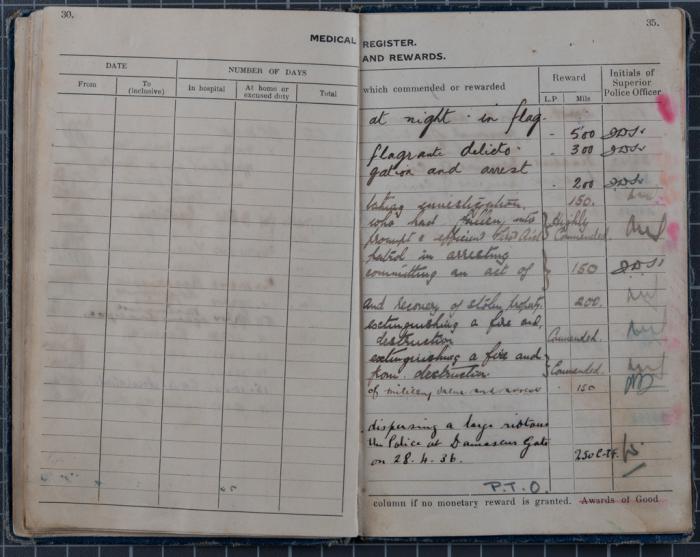 30.
MEDICAL
DATE
NUMBER OF DAYS
From
To (inclusive)
In hospital
At home or excused duty
Total
35.
REGISTER.
AND REWARDS.
which commended or rewarded
Reward
Initials of Superior Police Officer
L.P. Mils
at night in flag.
- 500
flagrante delicto - 300
gation and arrest
- 200
investigation. 150.
who had fallen into Highly
prompt & efficient First Aid Commended.
patrol in arresting
committing an act of 150
and recovery of stolen property. 200.
extinguishing a fire and
destruction Commended.
extinguishing a fire and
from destruction Commended.
of military 150
dispersing a large riotous
the Police at Damascus Gate
on 28.4.36. 250
P.T.O.
column if no monetary reward is granted. Awards of Good